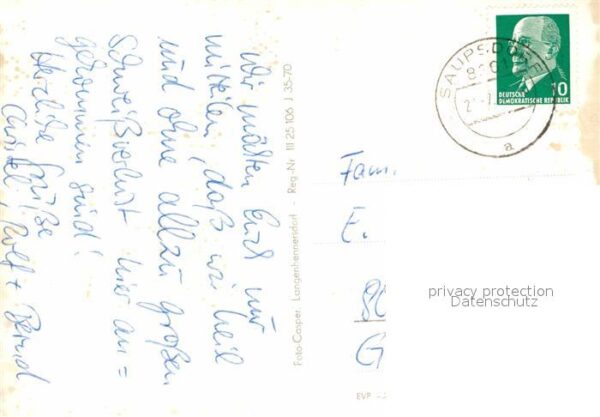 Wir möchten Euch nur
mitteilen, daß wir heil
und ohne allzu großen
Schweißverlust hier an=
gekommen sind!
Herzliche Grüße
Rolf + Bernd
Foto-Casper, Langenhennersdorf - Reg.-Nr III 25 106 J 35-70
SAUPSDORF
a
10
DEUTSCHE
DEMOKRATISCHE REPUBLIK
Fam.
E.
G
privacy protection
Datenschutz
EVP